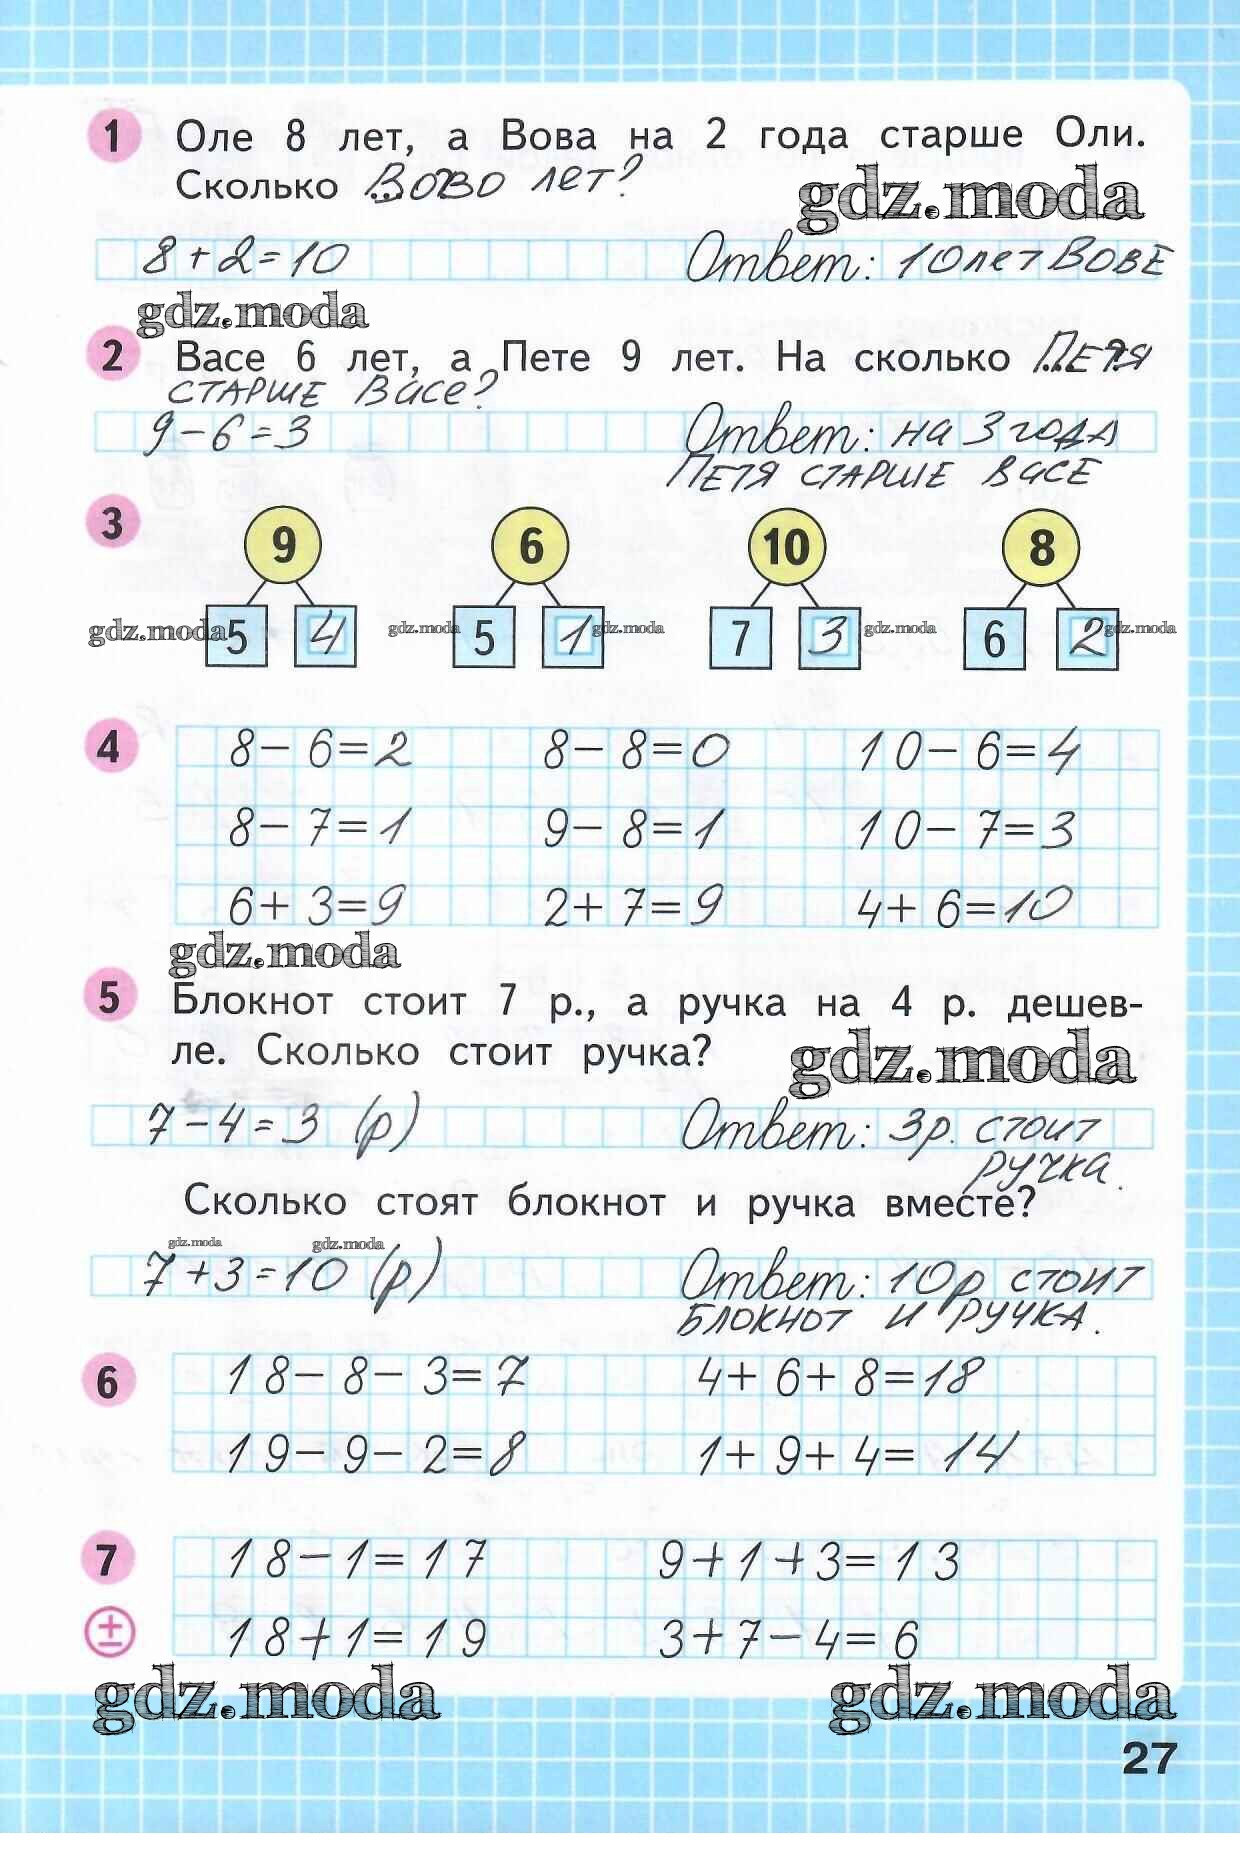 1 Оле 8 лет, а Вова на 2 года старше Оли.
Сколько Вово лет?
gdz.moda
8+2=10 Ответ: 10 лет Вове
gdz.moda
2 Васе 6 лет, а Пете 9 лет. На сколько Петя
старше Васе?
9-6=3 Ответ: на 3 года
Петя старше Васе
3 9 6 10 8
gdz.moda 5 4 gdz.moda 5 1 gdz.moda 7 3 gdz.moda 6 2 gdz.moda
4 8-6=2 8-8=0 10-6=4
8-7=1 9-8=1 10-7=3
6+3=9 2+7=9 4+6=10
gdz.moda
5 Блокнот стоит 7 р., а ручка на 4 р. дешев-
ле. Сколько стоит ручка?
gdz.moda
7-4=3 (р) Ответ: 3р. стоит
ручка.
Сколько стоят блокнот и ручка вместе?
gdz.moda gdz.moda
7+3=10 (р) Ответ: 10р стоит
блокнот и ручка.
6 18-8-3=7 4+6+8=18
19-9-2=8 1+9+4=14
7 18-1=17 9+1+3=13
± 18+1=19 3+7-4=6
gdz.moda gdz.moda
27